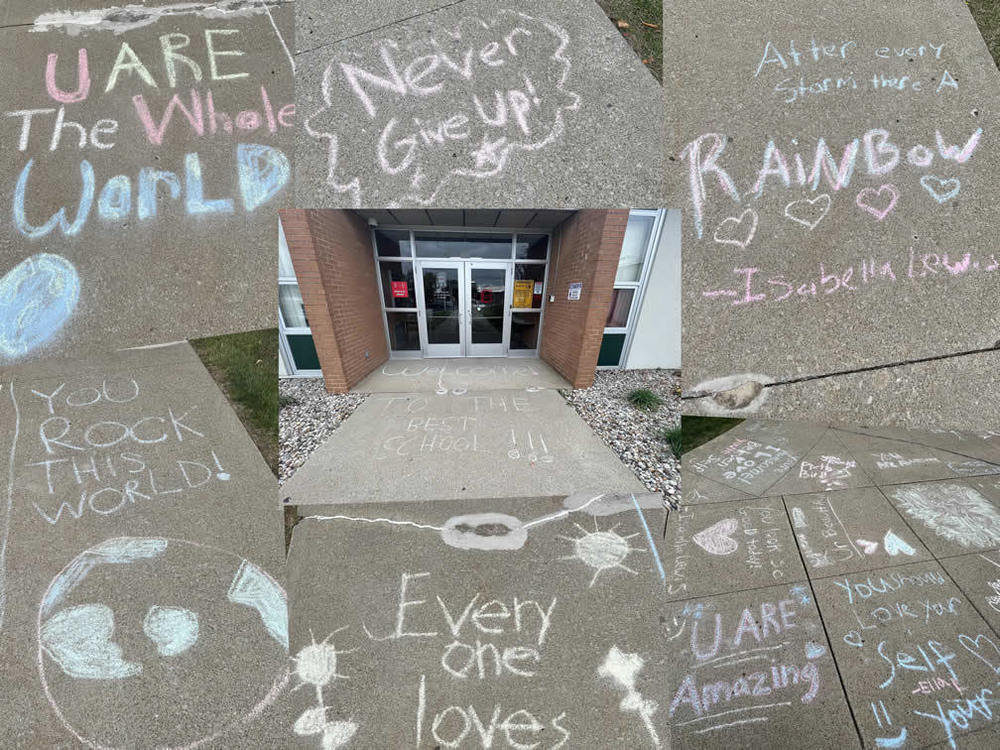 U ARE
The Whole
WorLD
Never
Give up!
After every
Storm there A
RAiNBow
-Isabella Lewis
YOU
ROCK
THIS
WORLD!
Welcome
TO THE
BEST
SCHOOL !!!
Every
one
loves
I Love
You look so
Good today!
U ARE
Amazing
You should
Love Your
Self
-Ella
Your